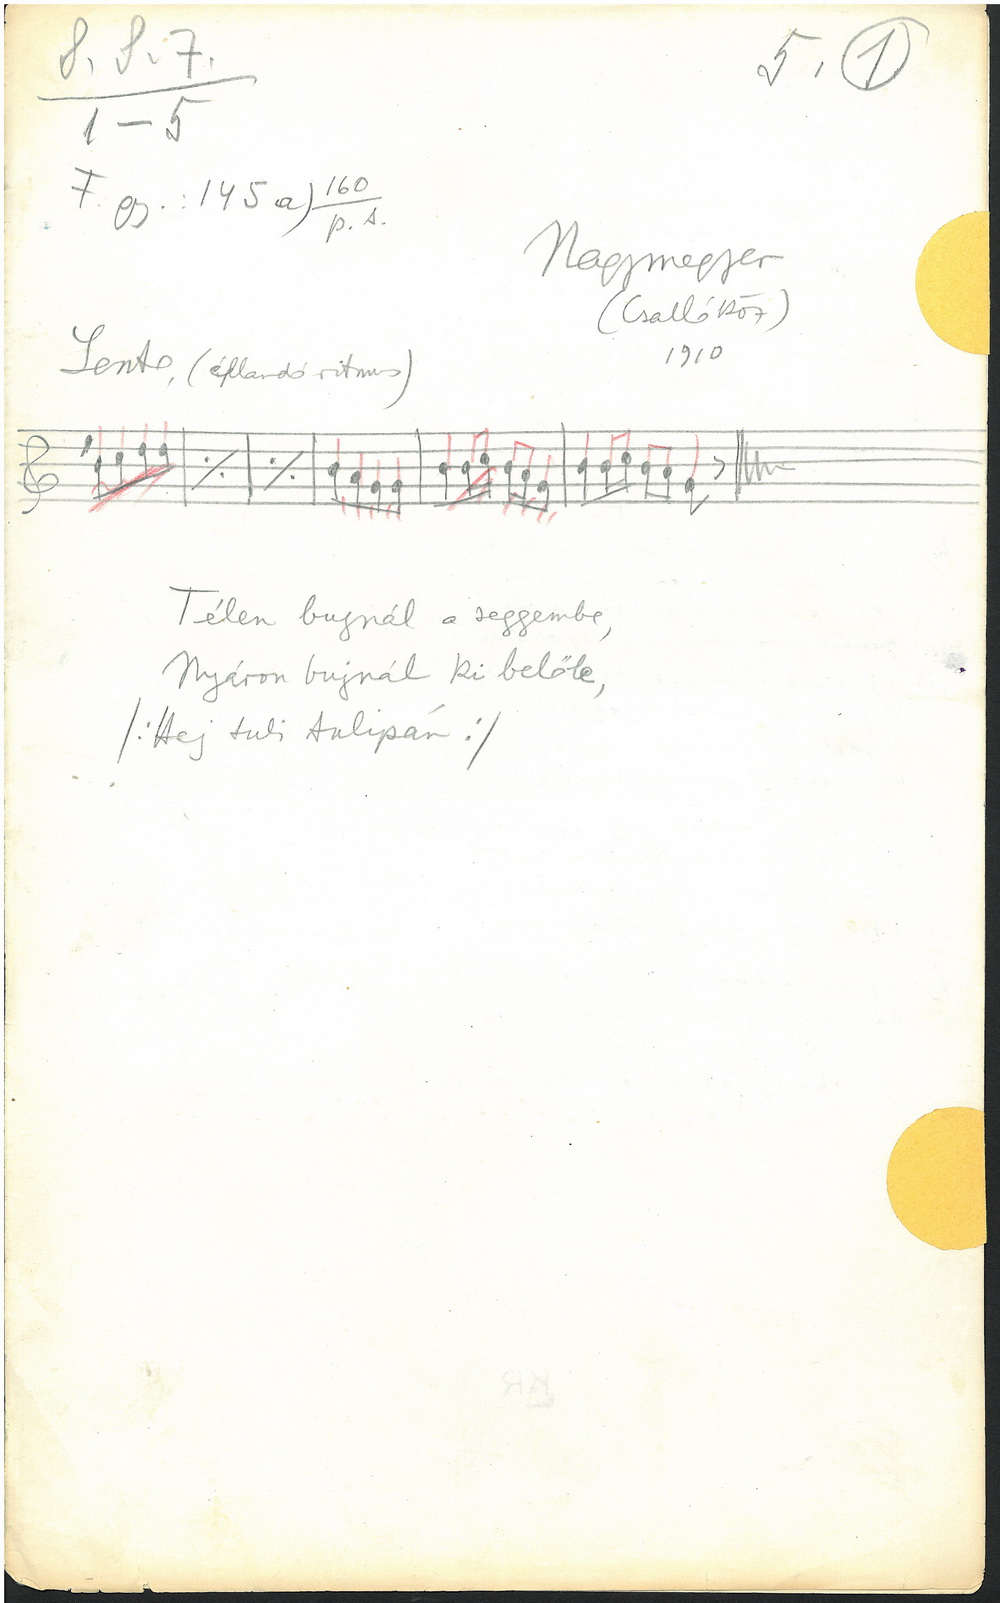 8. 8. 7.
1 — 5
5. 1
F. gy.: 145 a) 160
p. s.
Nagymegyer
(Csallóköz)
1910
Lento, (állandó ritmus)
Télen bugnál a seggembe,
Nyáron bujnál ki belőle,
/: Hej tuli tulipán :/